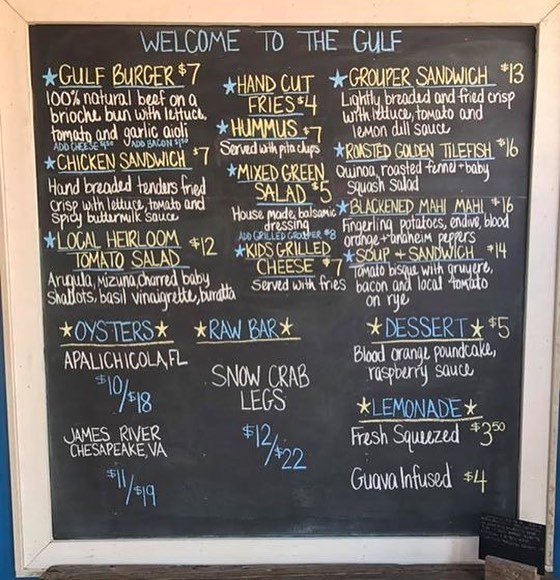 WELCOME TO THE GULF
★GULF BURGER $7
100% natural beef on a
brioche bun with lettuce,
tomato and garlic aioli
ADD CHEESE $1.50 ADD BACON $1.50
★CHICKEN SANDWICH $7
Hand breaded tenders fried
crisp with lettuce, tomato and
spicy buttermilk sauce
★LOCAL HEIRLOOM
TOMATO SALAD $12
Arugula, mizuna, charred baby
shallots, basil vinaigrette, burratta
★HAND CUT
FRIES $4
★HUMMUS $7
Served with pita chips
★MIXED GREEN
SALAD $5
House made, balsamic
dressing
ADD GRILLED GROUPER $8
★KIDS GRILLED
CHEESE $7
Served with fries
★GROUPER SANDWICH $13
Lightly breaded and fried crisp
with lettuce, tomato and
lemon dill sauce
★ROASTED GOLDEN TILEFISH $16
Quinoa, roasted fennel + baby
squash salad
★BLACKENED MAHI MAHI $16
Fingerling potatoes, endive, blood
orange + anaheim peppers
★SOUP + SANDWICH $14
Tomato bisque with gruyere,
bacon and local tomato
on rye
★OYSTERS★
APALICHICOLA, FL
$10/$18
JAMES RIVER
CHESAPEAKE, VA
$11/$19
★RAW BAR★
SNOW CRAB
LEGS
$12/$22
★DESSERT★ $5
Blood orange poundcake,
raspberry sauce
★LEMONADE★
Fresh Squeezed $3.50
Guava Infused $4